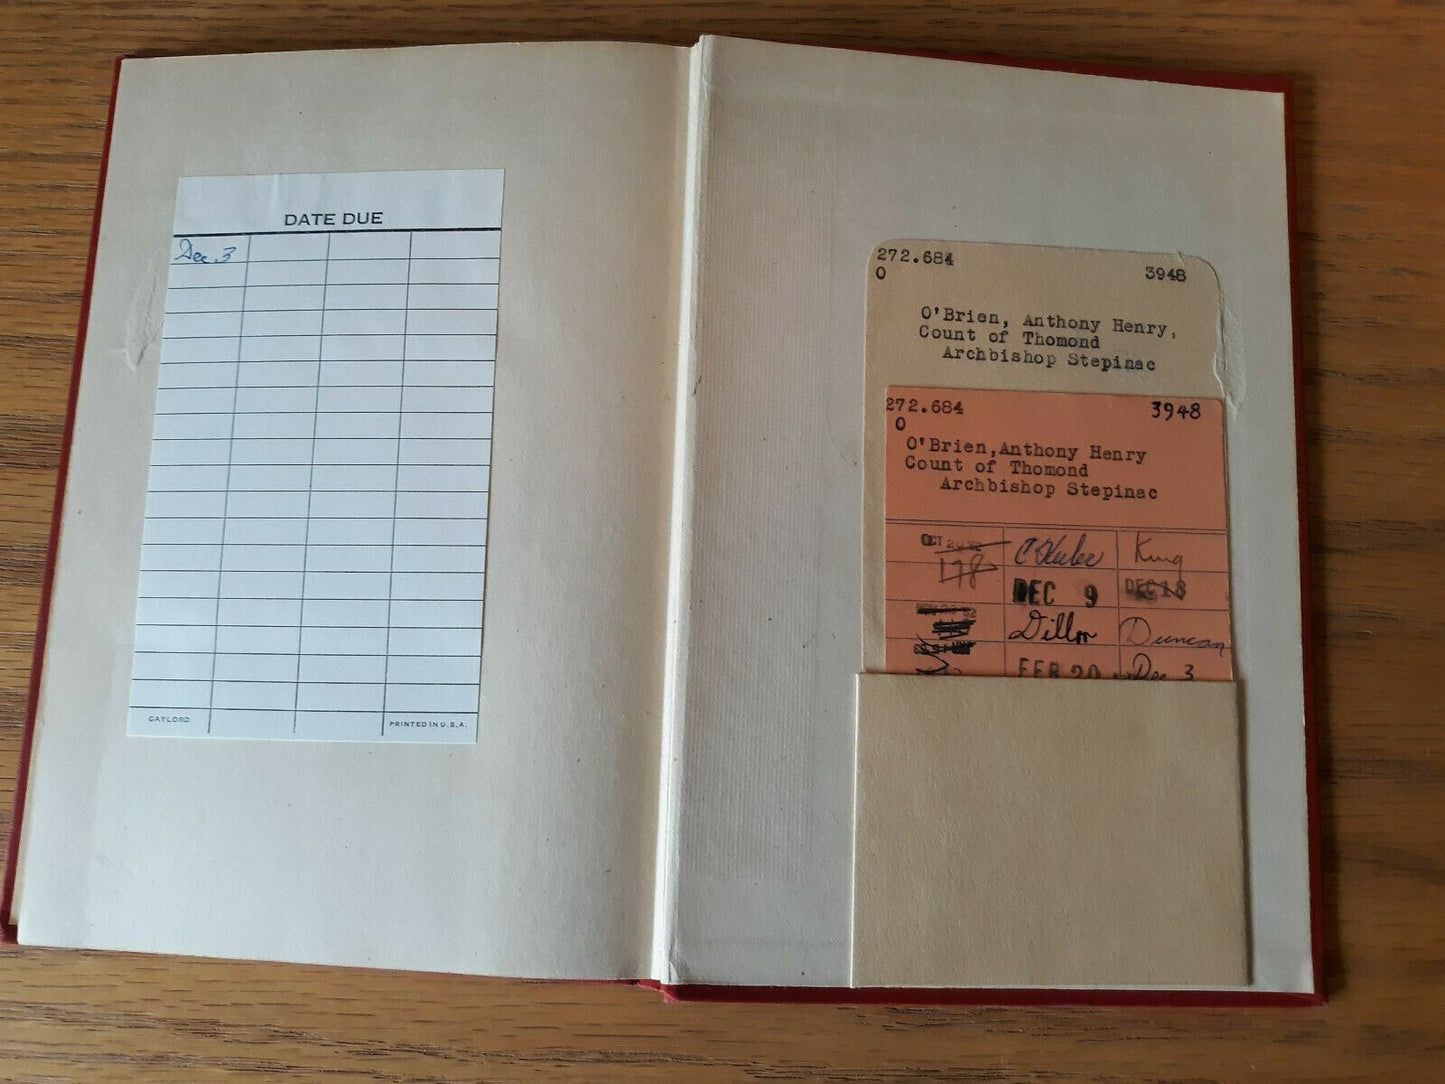 DATE DUE
Dec 3
GAYLORD
PRINTED IN U.S.A.
272.684 3948
O
O'Brien, Anthony Henry,
Count of Thomond
Archbishop Stepinac
272.684 3948
O
O'Brien,Anthony Henry
Count of Thomond
Archbishop Stepinac
OCT King
178
DEC 9 DEC 18
Dillon Duncan
FEB 20 Dec 3